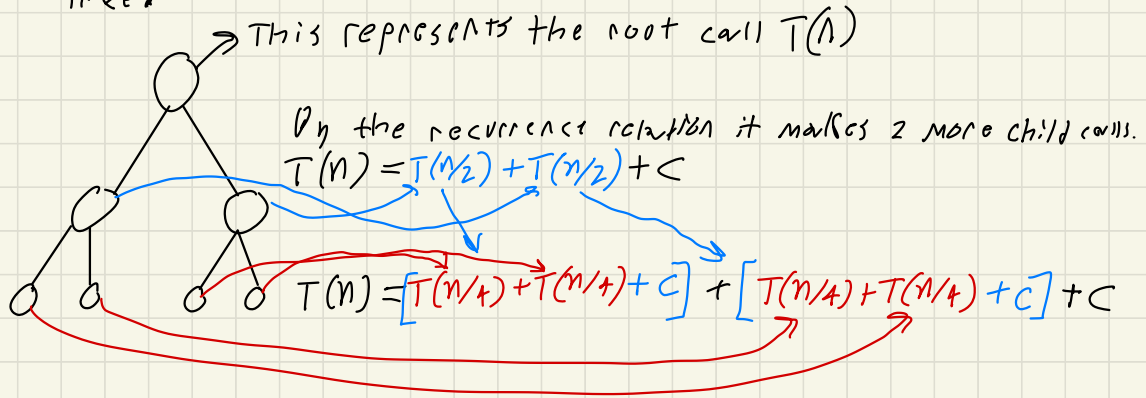 This represents the root call T(n)
On the recurrence relation it makes 2 more child calls.
T(n) = T(n/2) + T(n/2) + C
T(n) = [T(n/4) + T(n/4) + C] + [T(n/4) + T(n/4) + C] + C